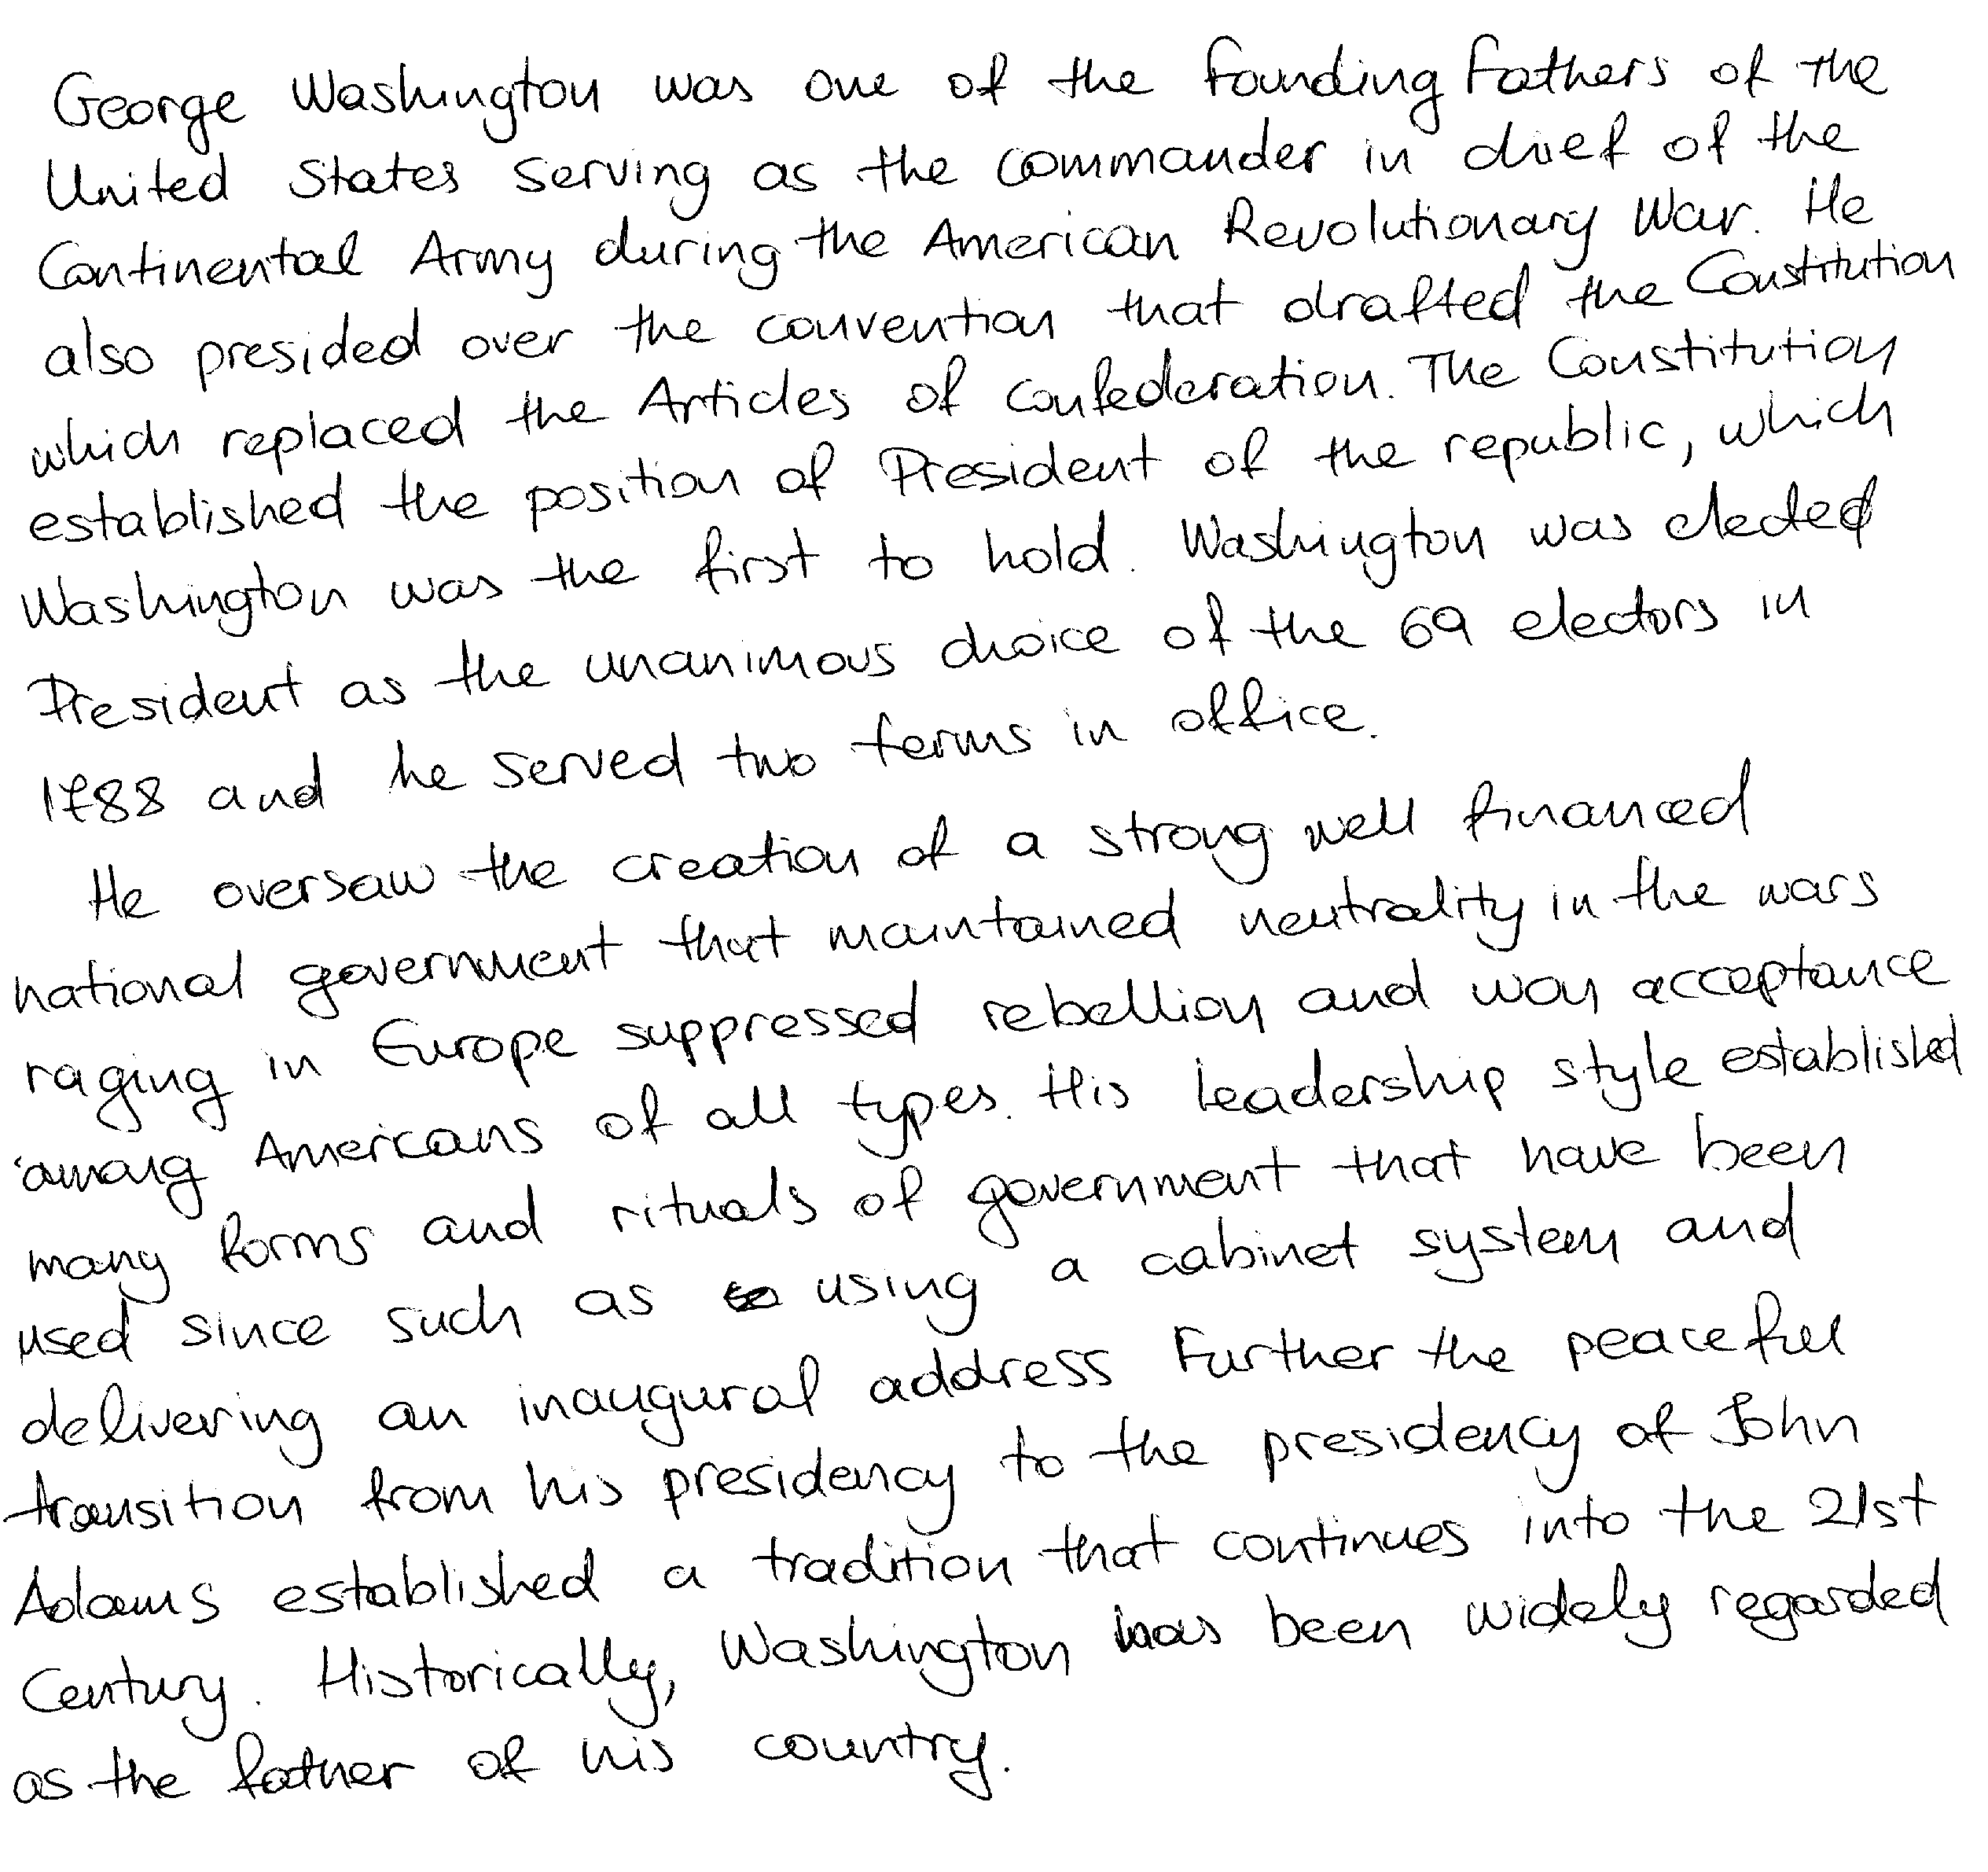 George Washington was one of the Founding Fathers of the
United States serving as the commander in chief of the
Continental Army during the American Revolutionary War. He
also presided over the convention that drafted the Constitution
which replaced the Articles of Confederation. The Constitution
established the position of President of the republic, which
Washington was the first to hold. Washington was elected
President as the unanimous choice of the 69 electors in
1788 and he served two terms in office.
He oversaw the creation of a strong well financed
national government that maintained neutrality in the wars
raging in Europe suppressed rebellion and won acceptance
among Americans of all types. His leadership style established
many forms and rituals of government that have been
used since such as using a cabinet system and
delivering an inaugural address Further the peaceful
transition from his presidency to the presidency of John
Adams established a tradition that continues into the 21st
Century. Historically, Washington has been widely regarded
as the father of his country.